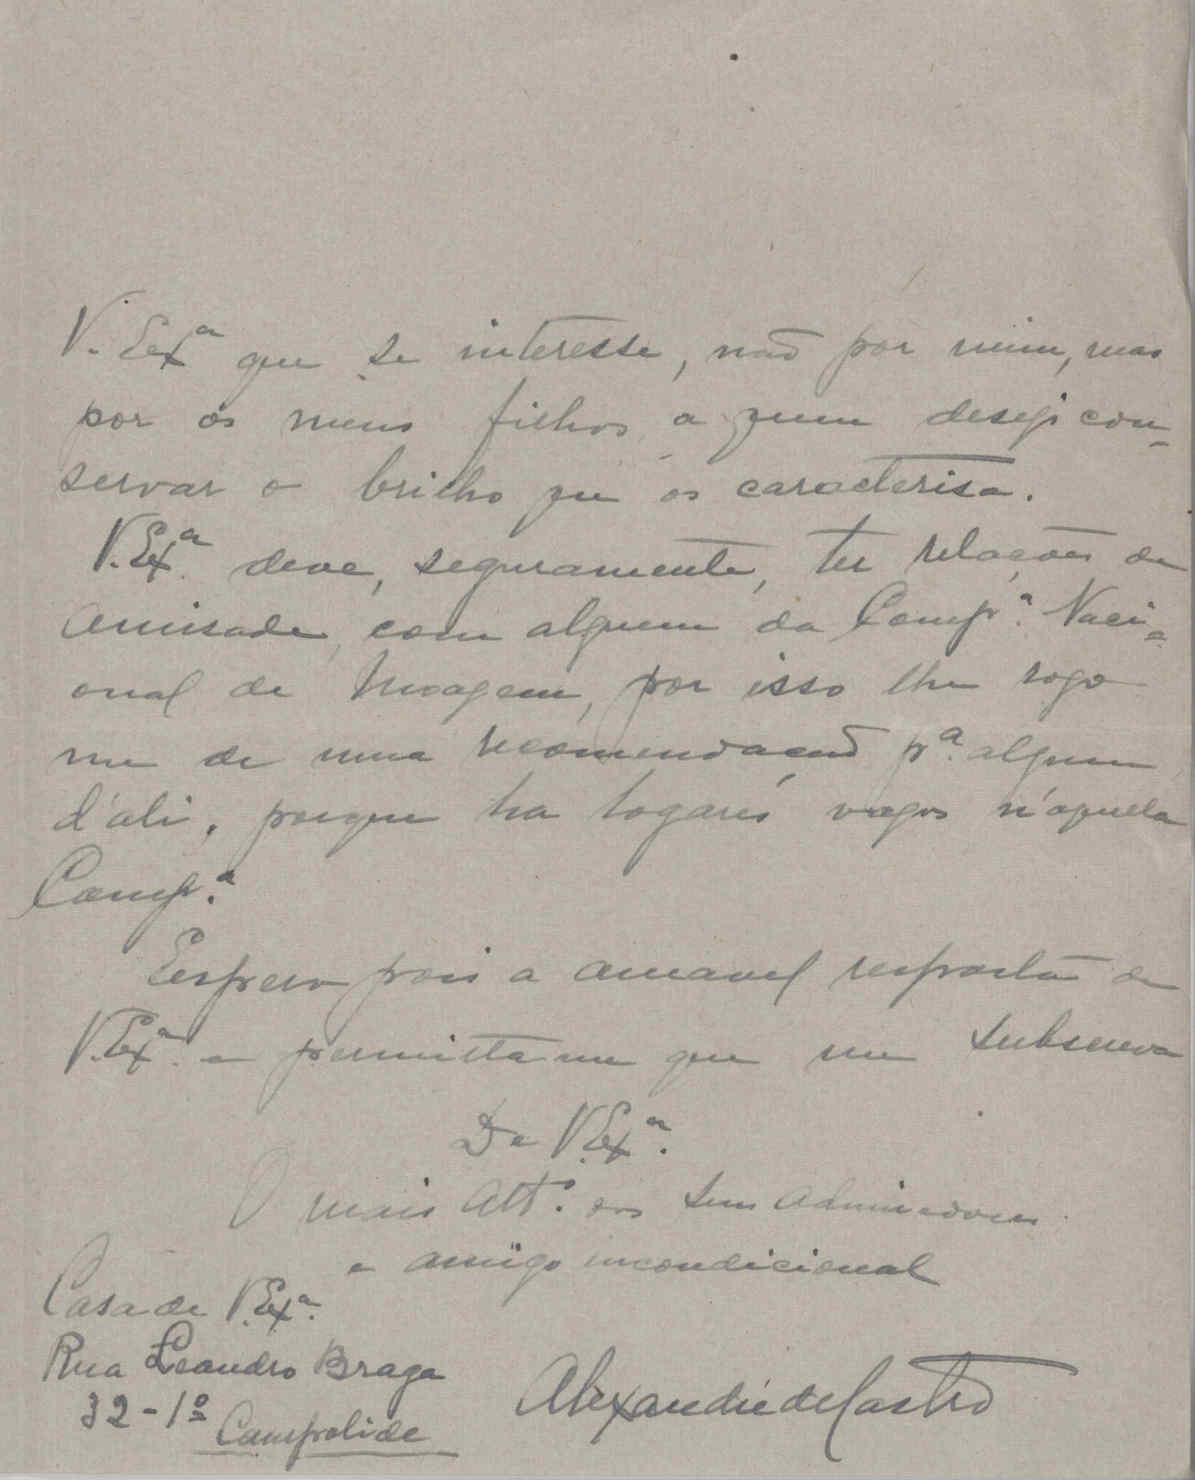 V. Exª que se interesse, não por mim, mas
por os meus filhos a quem desejo con-
servar o brilho que os caracterisa.
V. Exª. deve, seguramente, ter relações de
amisade, com alguem da Comp.ª Naci-
onal de Moagem, por isso lhe rogo
me de uma recomendação p.ª alguem
d'ali, porque ha logares vagos n'aquela
Comp.ª
Espero pois a amavel resposta de
V. Exª. e permitta me que me subscreva
De V. Exª.
O mais Att.º dos seus admiradores
e amigo incondicional
Casa de V. Exª.
Rua Leandro Braga
32-1º
Campolide
Alexandre de Castro